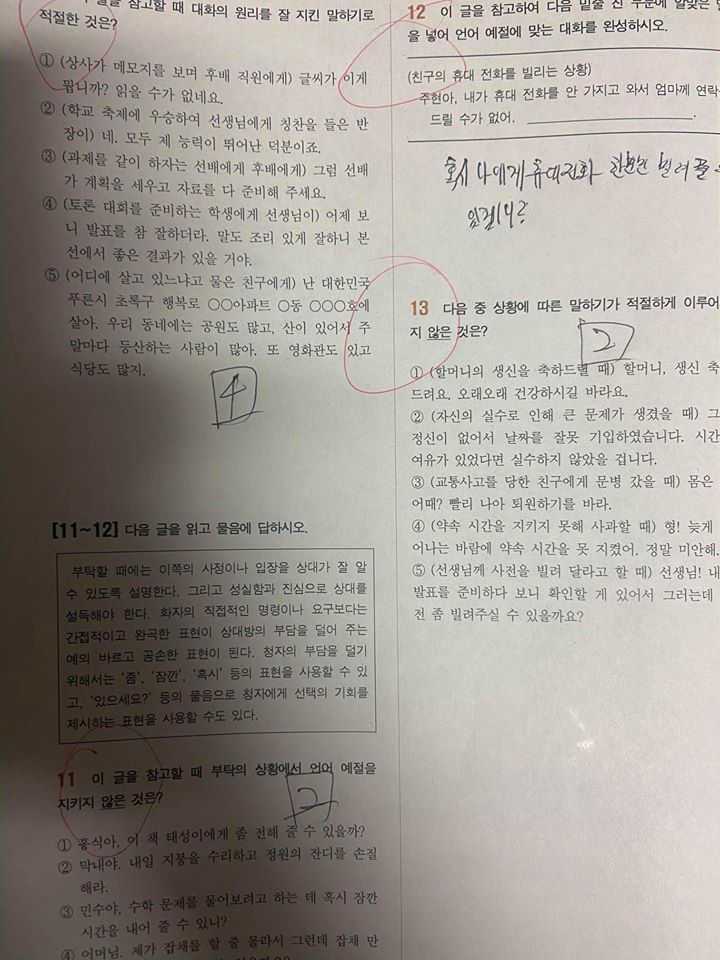 글을 참고할 때 대화의 원리를 잘 지킨 말하기로
적절한 것은?
① (상사가 메모지를 보며 후배 직원에게) 글씨가 이게
뭡니까? 읽을 수가 없네요.
② (학교 축제에 우승하여 선생님에게 칭찬을 들은 반
장이) 네. 모두 제 능력이 뛰어난 덕분이죠.
③ (과제를 같이 하자는 선배에게 후배에게) 그럼 선배
가 계획을 세우고 자료를 다 준비해 주세요.
④ (토론 대회를 준비하는 학생에게 선생님이) 어제 보
니 발표를 참 잘하더라. 말도 조리 있게 잘하니 본
선에서 좋은 결과가 있을 거야.
⑤ (어디에 살고 있느냐고 물은 친구에게) 난 대한민국
푸른시 초록구 행복로 ○○아파트 ○동 ○○○호에
살아. 우리 동네에는 공원도 많고, 산이 있어서 주
말마다 등산하는 사람이 많아. 또 영화관도 있고
식당도 많지.
4
[11~12] 다음 글을 읽고 물음에 답하시오.
부탁할 때에는 이쪽의 사정이나 입장을 상대가 잘 알
수 있도록 설명한다. 그리고 성실함과 진심으로 상대를
설득해야 한다. 화자의 직접적인 명령이나 요구보다는
간접적이고 완곡한 표현이 상대방의 부담을 덜어 주는
예의 바르고 공손한 표현이 된다. 청자의 부담을 덜기
위해서는 ‘좀’, ‘잠깐’, ‘혹시’ 등의 표현을 사용할 수 있
고, ‘있으세요?’ 등의 물음으로 청자에게 선택의 기회를
제시하는 표현을 사용할 수도 있다.
11 이 글을 참고할 때 부탁의 상황에서 언어 예절을
지키지 않은 것은?
2
① 홍식아, 이 책 태성이에게 좀 전해 줄 수 있을까?
② 막내야. 내일 지붕을 수리하고 정원의 잔디를 손질
해라.
③ 민수야, 수학 문제를 물어보려고 하는 데 혹시 잠깐
시간을 내어 줄 수 있니?
④ 어머님. 제가 잡채를 할 줄 몰라서 그런데 잡채 만
12 이 글을 참고하여 다음 밑줄 친 부분에 알맞은
을 넣어 언어 예절에 맞는 대화를 완성하시오.
(친구의 휴대 전화를 빌리는 상황)
주현아, 내가 휴대 전화를 안 가지고 와서 엄마께 연락
드릴 수가 없어.
혹시 나에게 휴대전화 한번만 빌려줄 수
있겠니?
13 다음 중 상황에 따른 말하기가 적절하게 이루어
지 않은 것은?
2
① (할머니의 생신을 축하드릴 때) 할머니, 생신 축
드려요. 오래오래 건강하시길 바라요.
② (자신의 실수로 인해 큰 문제가 생겼을 때) 그
정신이 없어서 날짜를 잘못 기입하였습니다. 시간
여유가 있었다면 실수하지 않았을 겁니다.
③ (교통사고를 당한 친구에게 문병 갔을 때) 몸은
어때? 빨리 나아 퇴원하기를 바라.
④ (약속 시간을 지키지 못해 사과할 때) 형! 늦게
어나는 바람에 약속 시간을 못 지켰어. 정말 미안해.
⑤ (선생님께 사전을 빌려 달라고 할 때) 선생님! 내
발표를 준비하다 보니 확인할 게 있어서 그러는데
전 좀 빌려주실 수 있을까요?